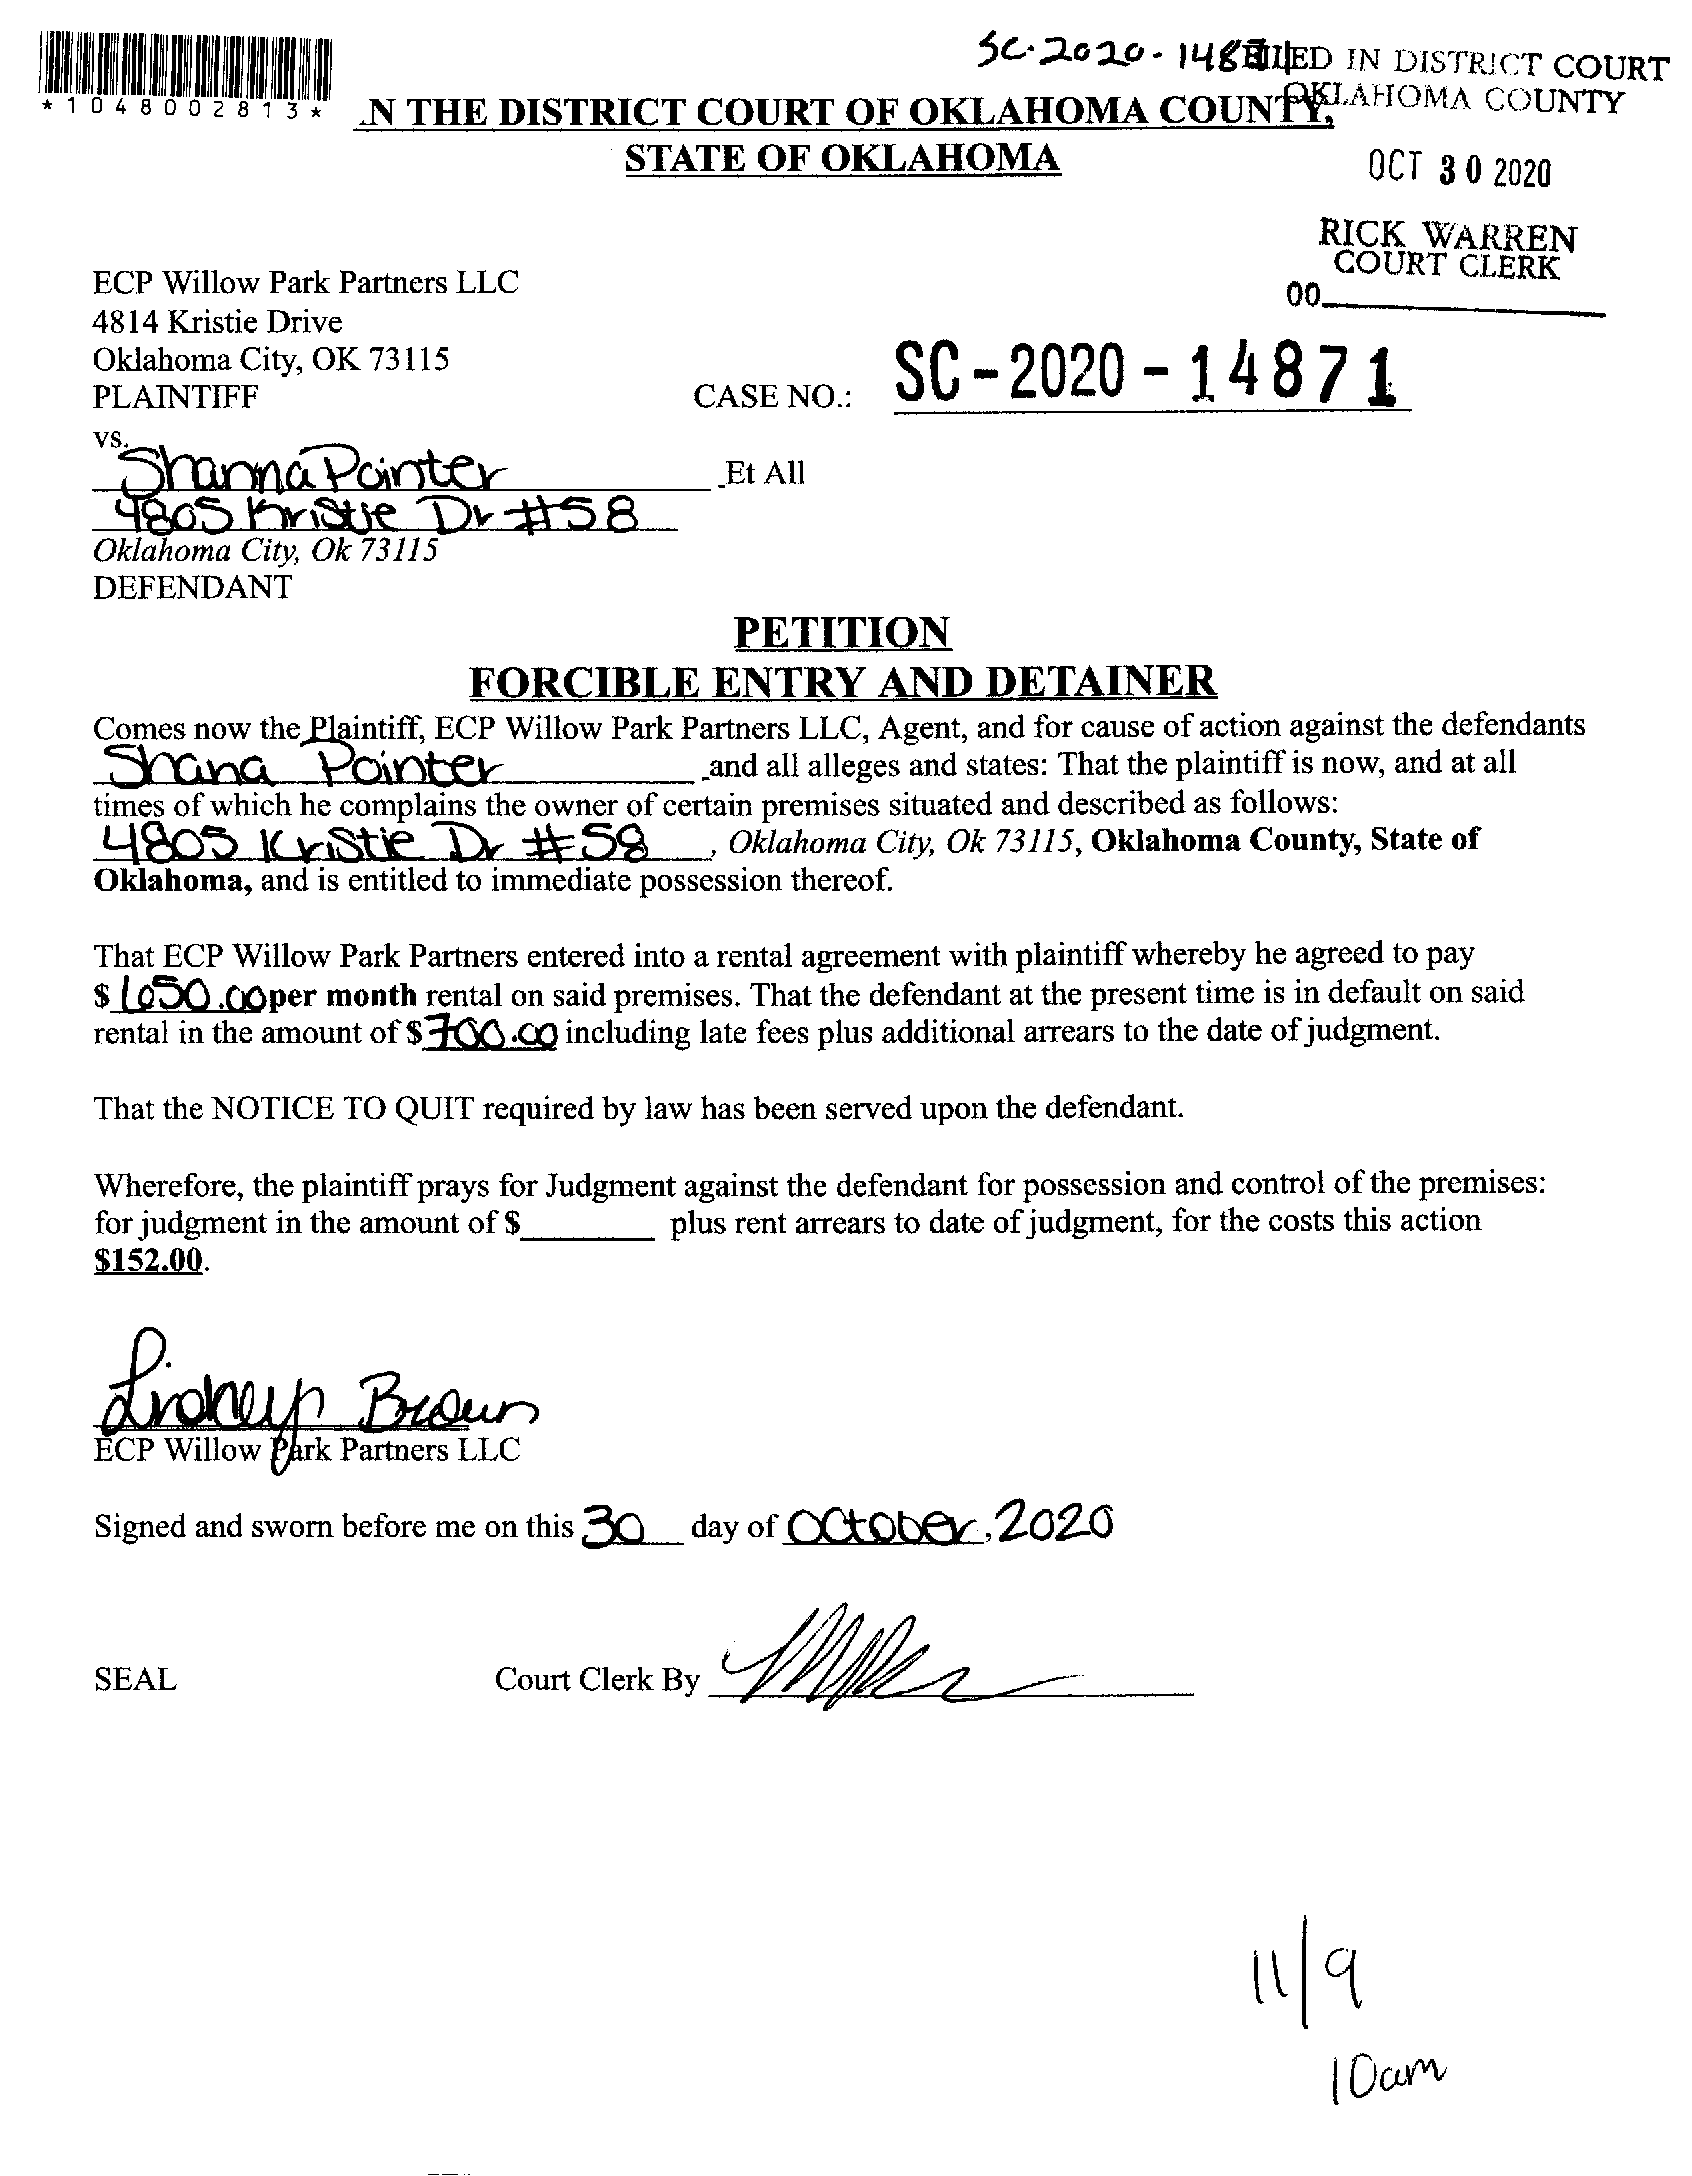 SC-2020-14871
FILED IN DISTRICT COURT
OKLAHOMA COUNTY
*1048002813*
N THE DISTRICT COURT OF OKLAHOMA COUNTY,
STATE OF OKLAHOMA
OCT 30 2020
RICK WARREN
COURT CLERK
00
ECP Willow Park Partners LLC
4814 Kristie Drive
Oklahoma City, OK 73115
PLAINTIFF
CASE NO.: SC-2020-14871
vs.
Shanna Pointer Et All
4805 Kristie Dr #58
Oklahoma City, Ok 73115
DEFENDANT
PETITION
FORCIBLE ENTRY AND DETAINER
Comes now the Plaintiff, ECP Willow Park Partners LLC, Agent, and for cause of action against the defendants
Shana Pointer and all alleges and states: That the plaintiff is now, and at all
times of which he complains the owner of certain premises situated and described as follows:
4805 Kristie Dr #58, Oklahoma City, Ok 73115, Oklahoma County, State of
Oklahoma, and is entitled to immediate possession thereof.
That ECP Willow Park Partners entered into a rental agreement with plaintiff whereby he agreed to pay
$ 650.00 per month rental on said premises. That the defendant at the present time is in default on said
rental in the amount of $ 700.00 including late fees plus additional arrears to the date of judgment.
That the NOTICE TO QUIT required by law has been served upon the defendant.
Wherefore, the plaintiff prays for Judgment against the defendant for possession and control of the premises:
for judgment in the amount of $________ plus rent arrears to date of judgment, for the costs this action
$152.00.
Lindsey Brown
ECP Willow Park Partners LLC
Signed and sworn before me on this 30 day of October, 2020
SEAL Court Clerk By
11/9
10am